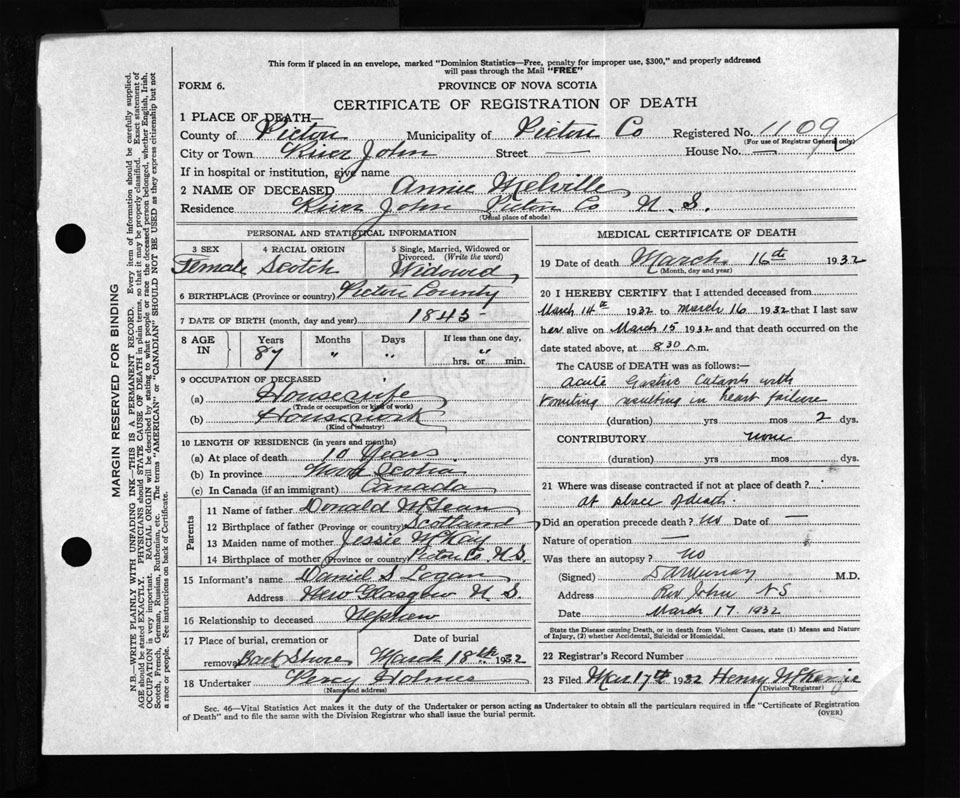 This form if placed in an envelope, marked "Dominion Statistics—Free, penalty for improper use, $300," and properly addressed
will pass through the Mail "FREE"
FORM 6. PROVINCE OF NOVA SCOTIA
CERTIFICATE OF REGISTRATION OF DEATH
1 PLACE OF DEATH—
County of Pictou Municipality of Pictou Co Registered No. 1109
(For use of Registrar General only)
City or Town River John Street — House No. —
If in hospital or institution, give name
2 NAME OF DECEASED Annie Melville
Residence River John Pictou Co N. S.
(Usual place of abode)
PERSONAL AND STATISTICAL INFORMATION
3 SEX 4 RACIAL ORIGIN 5 Single, Married, Widowed or Divorced. (Write the word)
Female Scotch Widowed
6 BIRTHPLACE (Province or country) Pictou County
7 DATE OF BIRTH (month, day and year) 1845
8 AGE IN Years Months Days If less than one day,
87 " " " hrs. or min.
9 OCCUPATION OF DECEASED
(a) Housewife
(Trade or occupation or kind of work)
(b) Housework
(Kind of industry)
10 LENGTH OF RESIDENCE (in years and months)
(a) At place of death 10 Years
(b) In province Nova Scotia
(c) In Canada (if an immigrant) Canada
Parents
11 Name of father Donald McLean
12 Birthplace of father (Province or country) Scotland
13 Maiden name of mother Jessie McKay
14 Birthplace of mother (Province or country) Pictou Co. N.S.
15 Informant's name Daniel S Logan
Address New Glasgow N. S.
16 Relationship to deceased Nephew
17 Place of burial, cremation or Date of burial
removal Back Shore March 18th 1932
18 Undertaker Percy Holmes
(Name and address)
MEDICAL CERTIFICATE OF DEATH
19 Date of death March 16th 1932
(Month, day and year)
20 I HEREBY CERTIFY that I attended deceased from
March 14th 1932 to March 16 1932 that I last saw
her alive on March 15 1932 and that death occurred on the
date stated above, at 830 A m.
The CAUSE of DEATH was as follows:—
Acute Gastric Catarrh with
Vomiting resulting in heart failure
(duration) yrs mos 2 dys.
CONTRIBUTORY none
(duration) yrs mos dys.
21 Where was disease contracted if not at place of death?
at place of death.
Did an operation precede death? No Date of —
Nature of operation —
Was there an autopsy? No
(Signed) M.D.
Address Riv John NS
Date March 17 1932
State the Disease causing Death, or in death from Violent Causes, state (1) Means and Nature
of Injury, (2) whether Accidental, Suicidal or Homicidal.
22 Registrar's Record Number
23 Filed Mar 17th 1932 Henry McKenzie
(Division Registrar)
Sec. 46—Vital Statistics Act makes it the duty of the Undertaker or person acting as Undertaker to obtain all the particulars required in the "Certificate of Registration
of Death" and to file the same with the Division Registrar who shall issue the burial permit. (OVER)
MARGIN RESERVED FOR BINDING
N.B.—WRITE PLAINLY WITH UNFADING INK—THIS IS A PERMANENT RECORD. Every item of information should be carefully supplied.
AGE should be stated EXACTLY. PHYSICIANS should STATE CAUSE OF DEATH in plain terms, so that it may be properly classified. Exact statement of
OCCUPATION is very important. RACIAL ORIGIN will be described by stating to what people or race the deceased person belonged, whether English, Irish,
Scotch, French, German, Russian, Ruthenian, etc. The terms "AMERICAN" or "CANADIAN" SHOULD NOT BE USED as they express citizenship but not
a race or people. See instructions on back of Certificate.